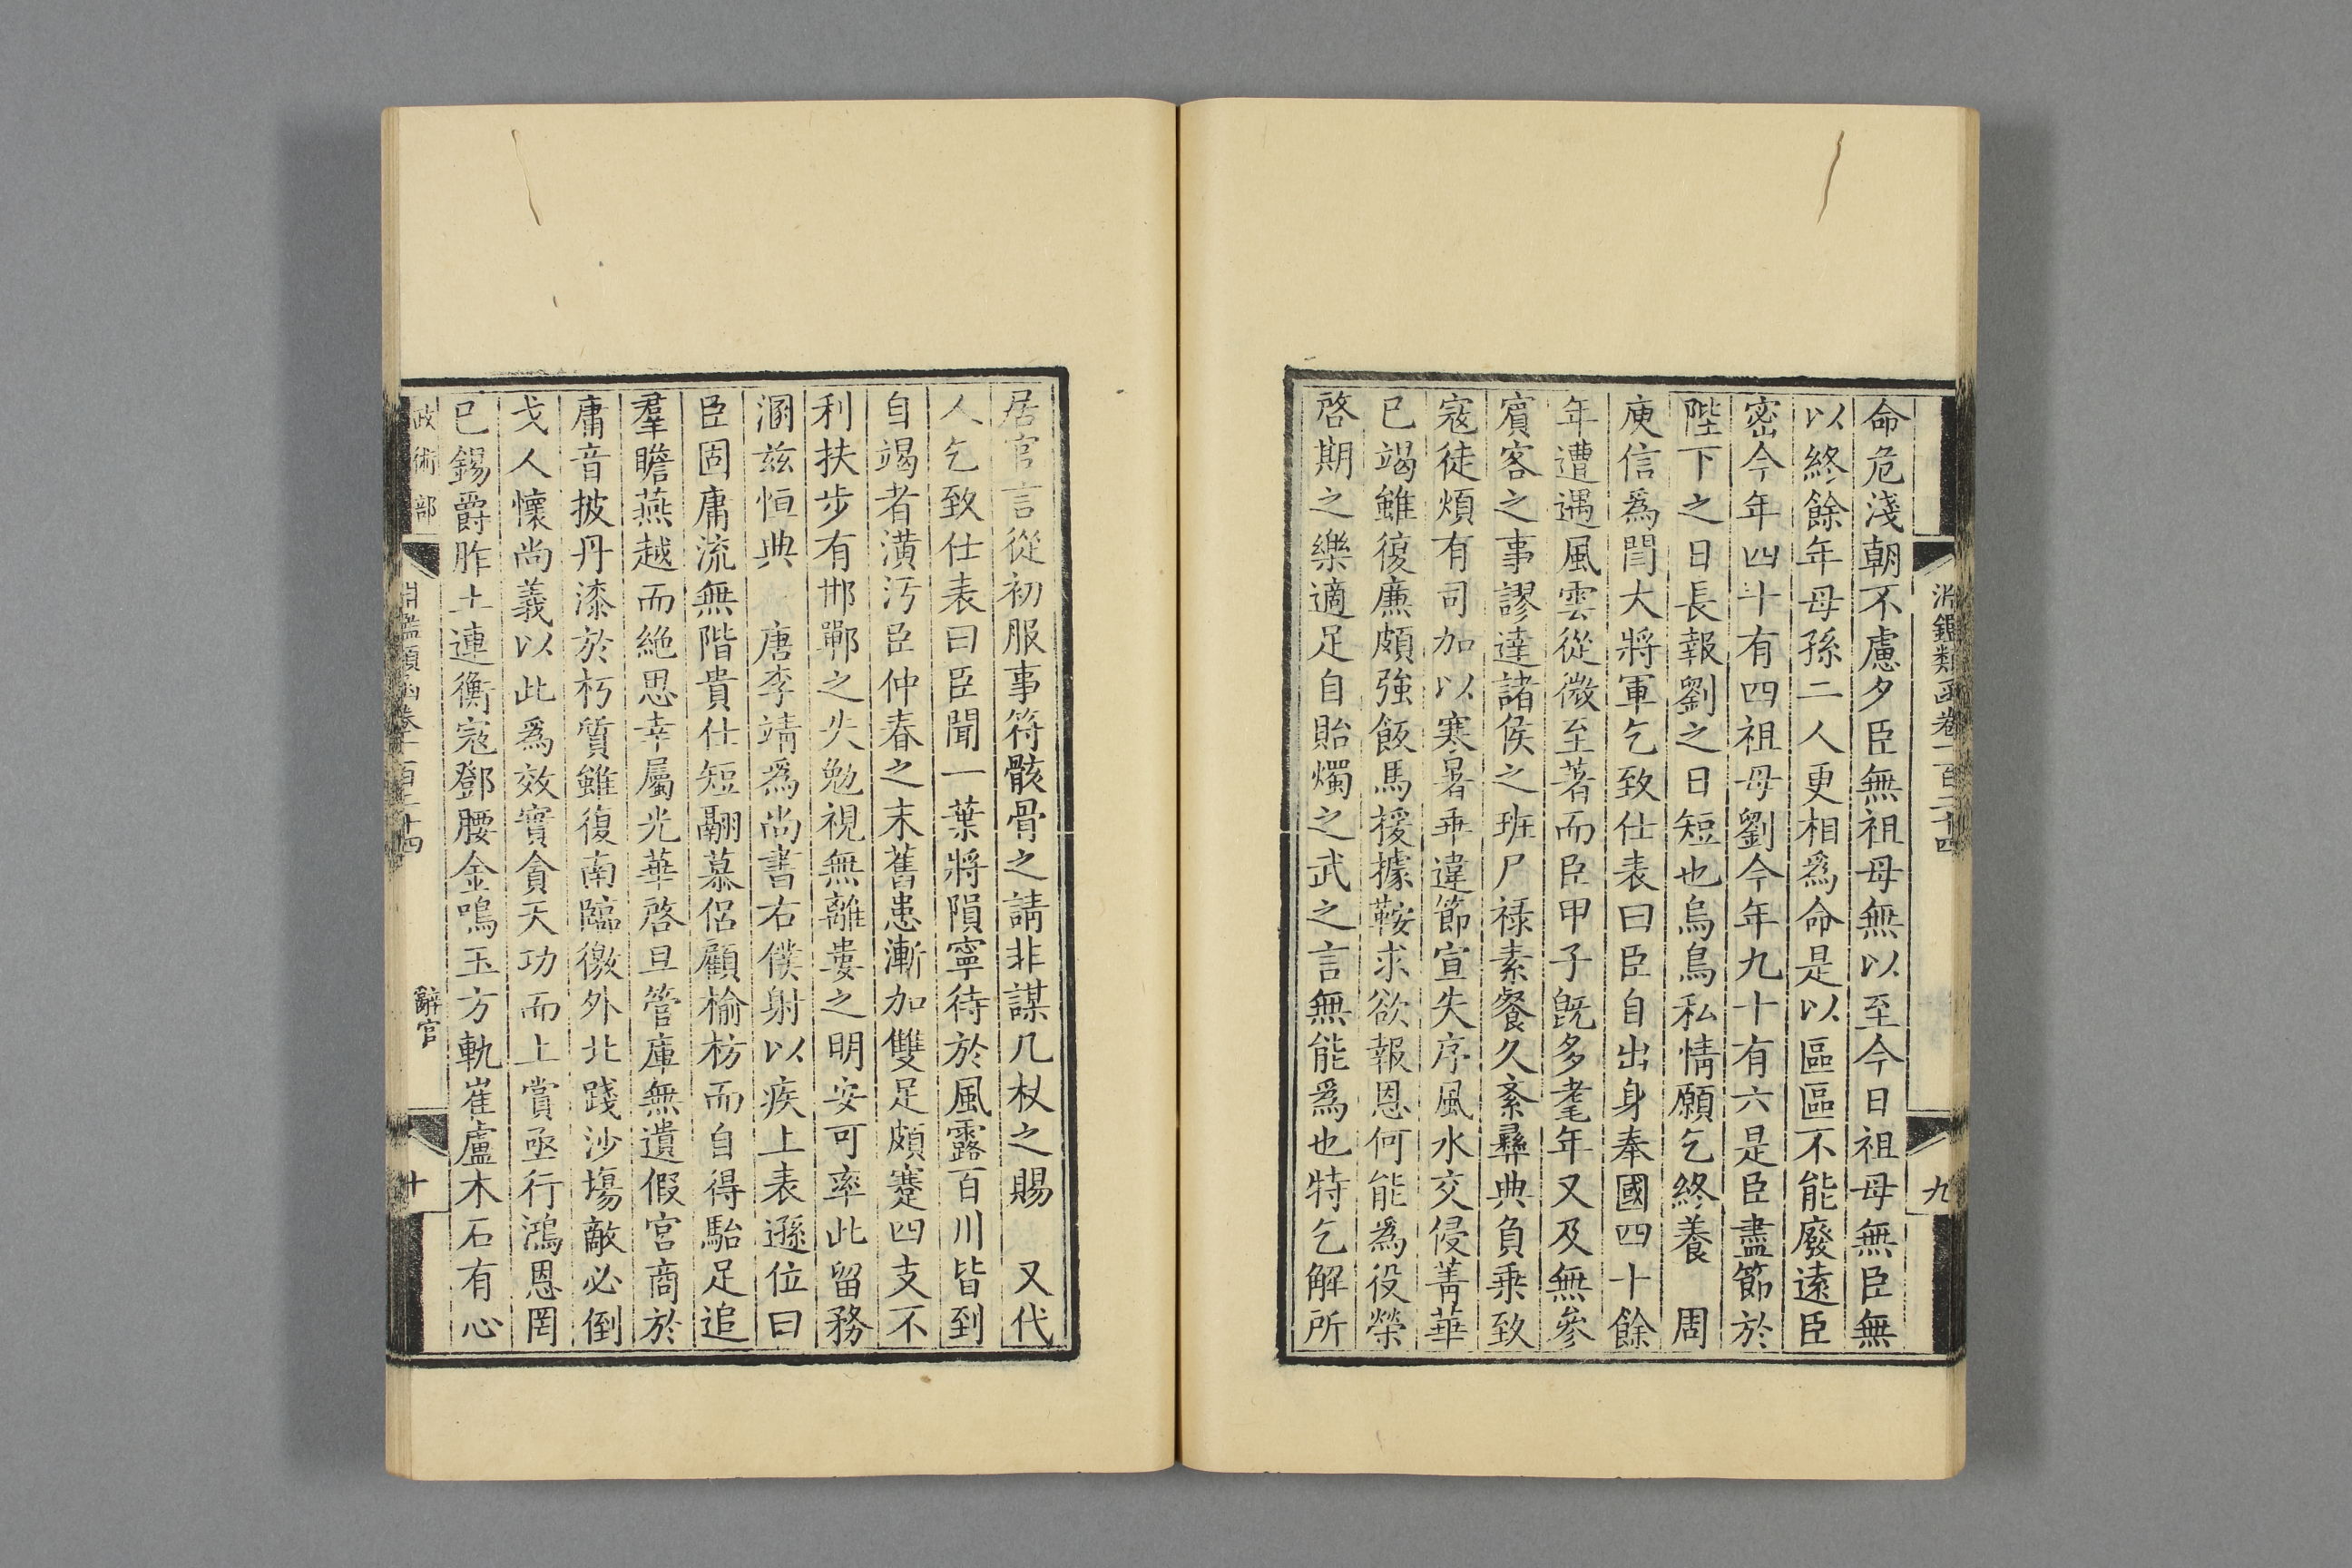 淵鑑類函卷一百三十四
九
命危淺朝不慮夕臣無祖母無以至今日祖母無臣無
以終餘年母孫二人更相爲命是以區區不能廢遠臣
密今年四十有四祖母劉今年九十有六是臣盡節於
陛下之日長報劉之日短也烏鳥私情願乞終養 周
庾信爲閆大將軍乞致仕表曰臣自出身奉國四十餘
年遭遇風雲從微至著而臣甲子旣多耄年又及無參
賓客之事謬達諸侯之班尸祿素餐久紊彝典負乗致
寇徒煩有司加以寒暑乖違節宣失序風水交侵菁華
已竭雖復廉頗強飯馬援據鞍求欲報恩何能爲役榮
啓期之樂適足自貽燭之武之言無能爲也特乞解所
居官言從初服事符骸骨之請非謀几杖之賜 又代
人乞致仕表曰臣聞一葉將隕寧待於風露百川皆到
自竭者潢汚臣仲春之末舊患漸加雙足頗蹇四支不
利扶步有邯鄲之失勉視無離婁之明安可率此留務
溷兹恒典 唐李靖爲尚書右僕射以疾上表遜位曰
臣固庸流無階貴仕短翮慕侶顧榆枋而自得駘足追
羣瞻燕越而絶思幸屬光華啓旦管庫無遺假宮商於
庸音披丹漆於朽質雖復南臨徼外北踐沙塲敵必倒
戈人懷尚義以此爲效實貪天功而上賞亟行鴻恩罔
已錫爵胙土連衡寇鄧腰金鳴玉方軌崔盧木石有心
政術部
淵鑑類函卷一百三十四
辭官
十